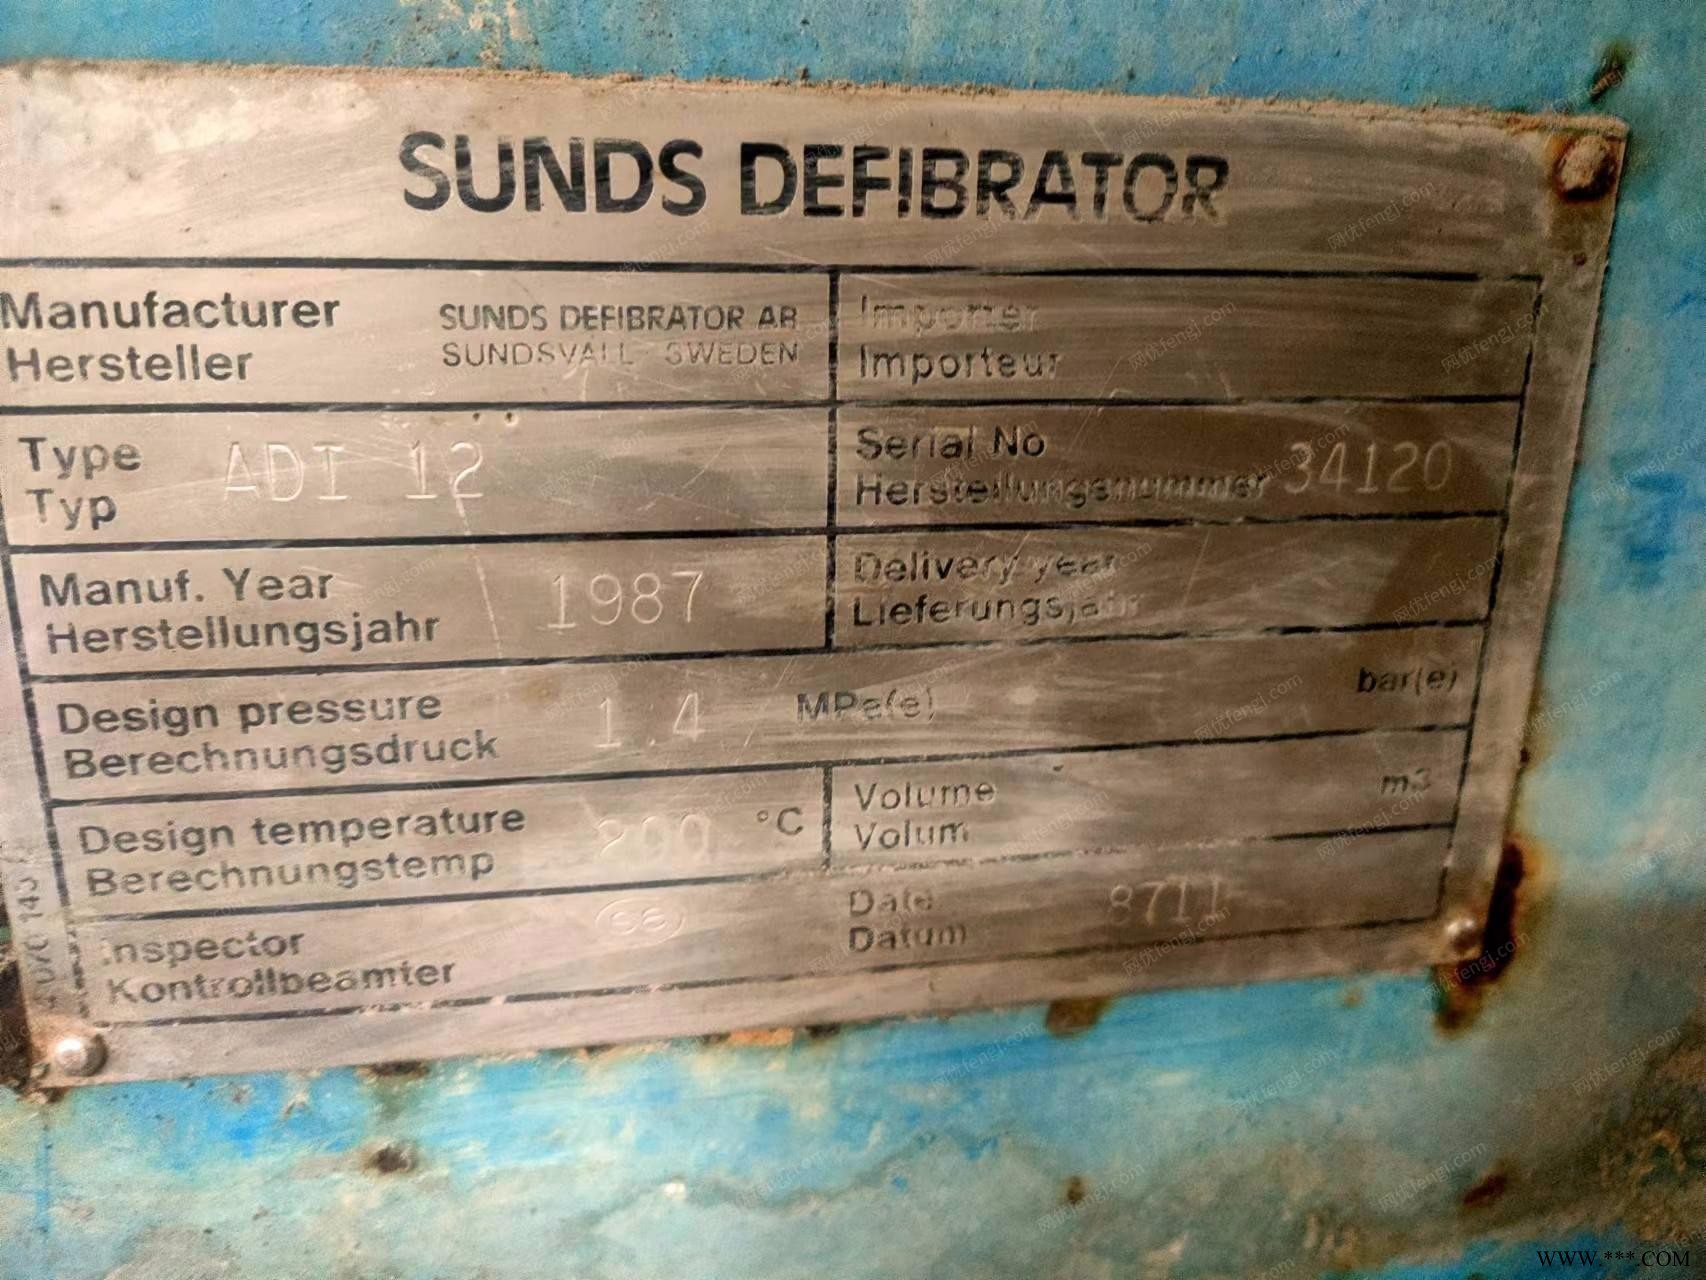 SUNDS DEFIBRATOR
Manufacturer
Hersteller
SUNDS DEFIBRATOR AB
SUNDSVALL SWEDEN
Importer
Importeur
Type
Typ
ADI 12
Serial No
Herstellungsnummer
34120
Manuf. Year
Herstellungsjahr
1987
Delivery year
Lieferungsjahr
Design pressure
Berechnungsdruck
1.4
MPa(e)
bar(e)
Design temperature
Berechnungstemp
200
°C
Volume
Volum
m3
Inspector
Kontrollbeamter
Date
Datum
8711
WWW.***.COM